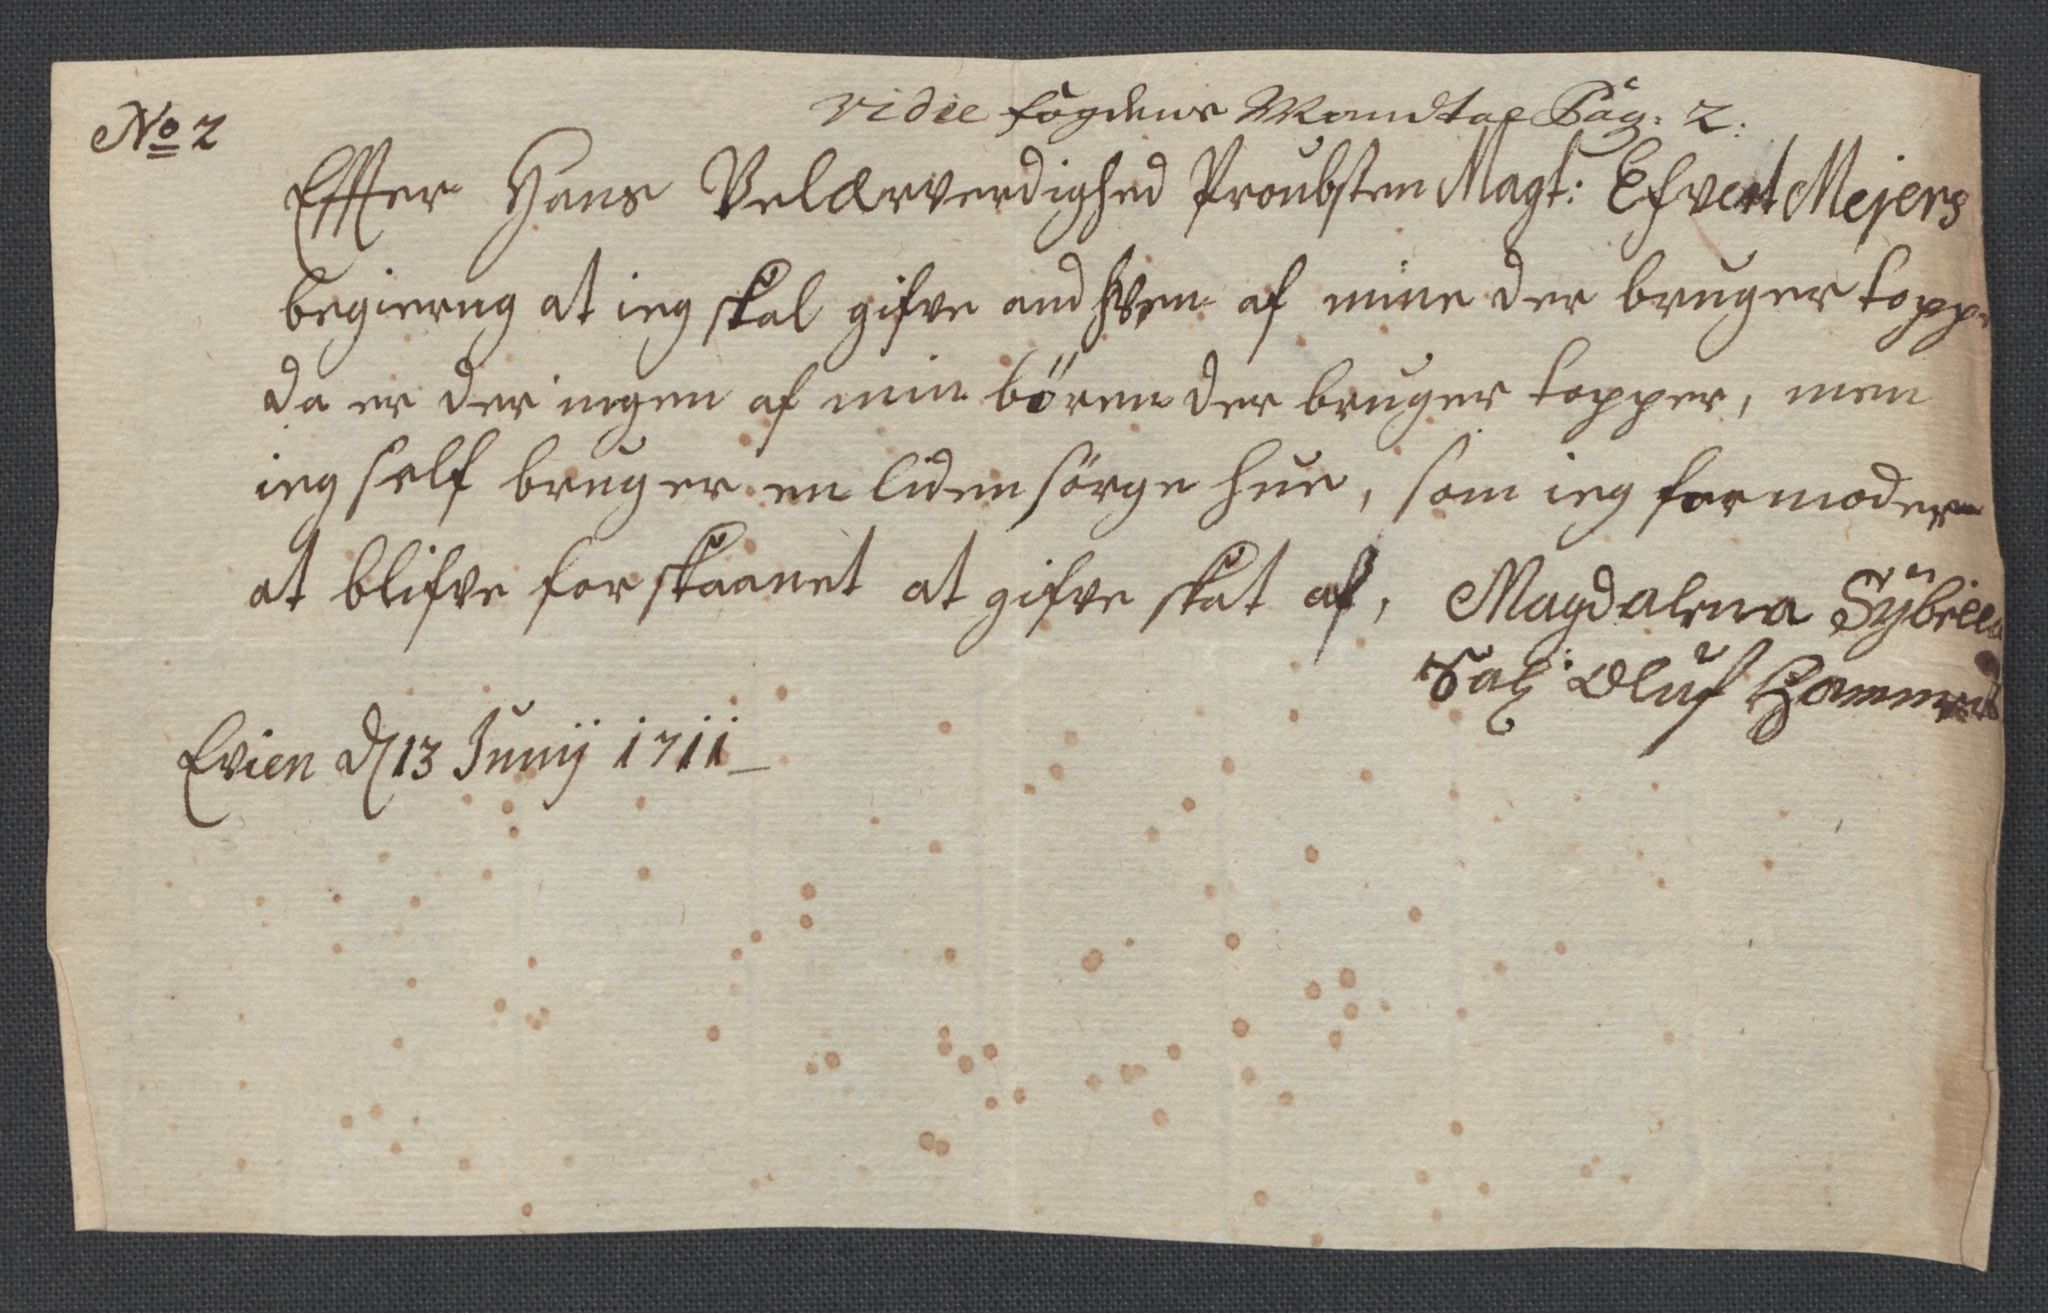 No 2
vidie fogdens Mandtal Pag: 2:
Effter Hans Velærverdighed Proubsten Magt: Efvert Mejers
begierng at ieg skal gifve and hven af mine der bruger toppe
da er der ingen af min bören der bruger topper, men
ieg self bruger en liden sörge hue, som ieg formoder
at blifve forskaanet at gifve skat af, Magdalena Sÿbilla
Sal: Oluf Hammers
Evien d 13 Junij 1711